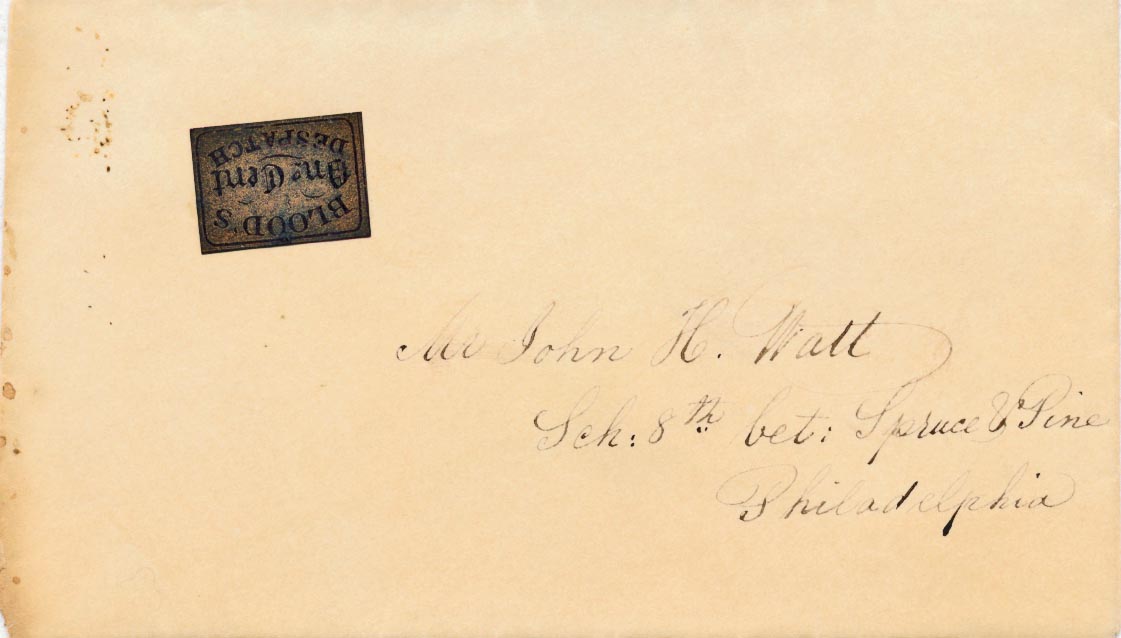 BLOOD'S
One Cent
DESPATCH
Mr John H. Watt
Sch: 8th bet: Spruce & Pine
Philadelphia